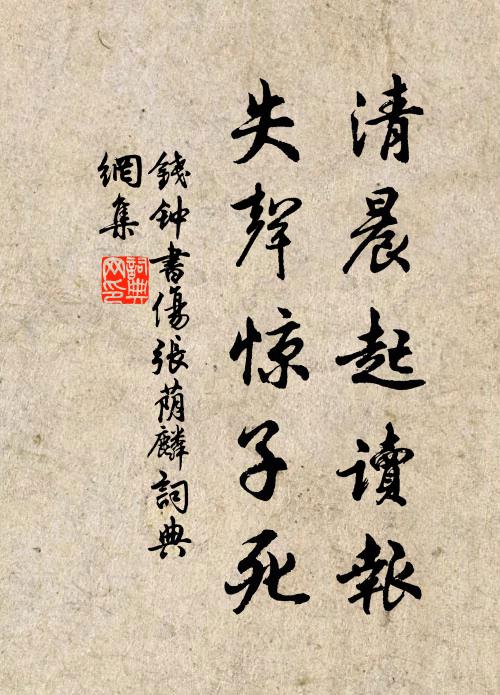 清晨起讀報
失聲惊子死
錢钟書傷張荫麟詞典
網集
詞典
网印